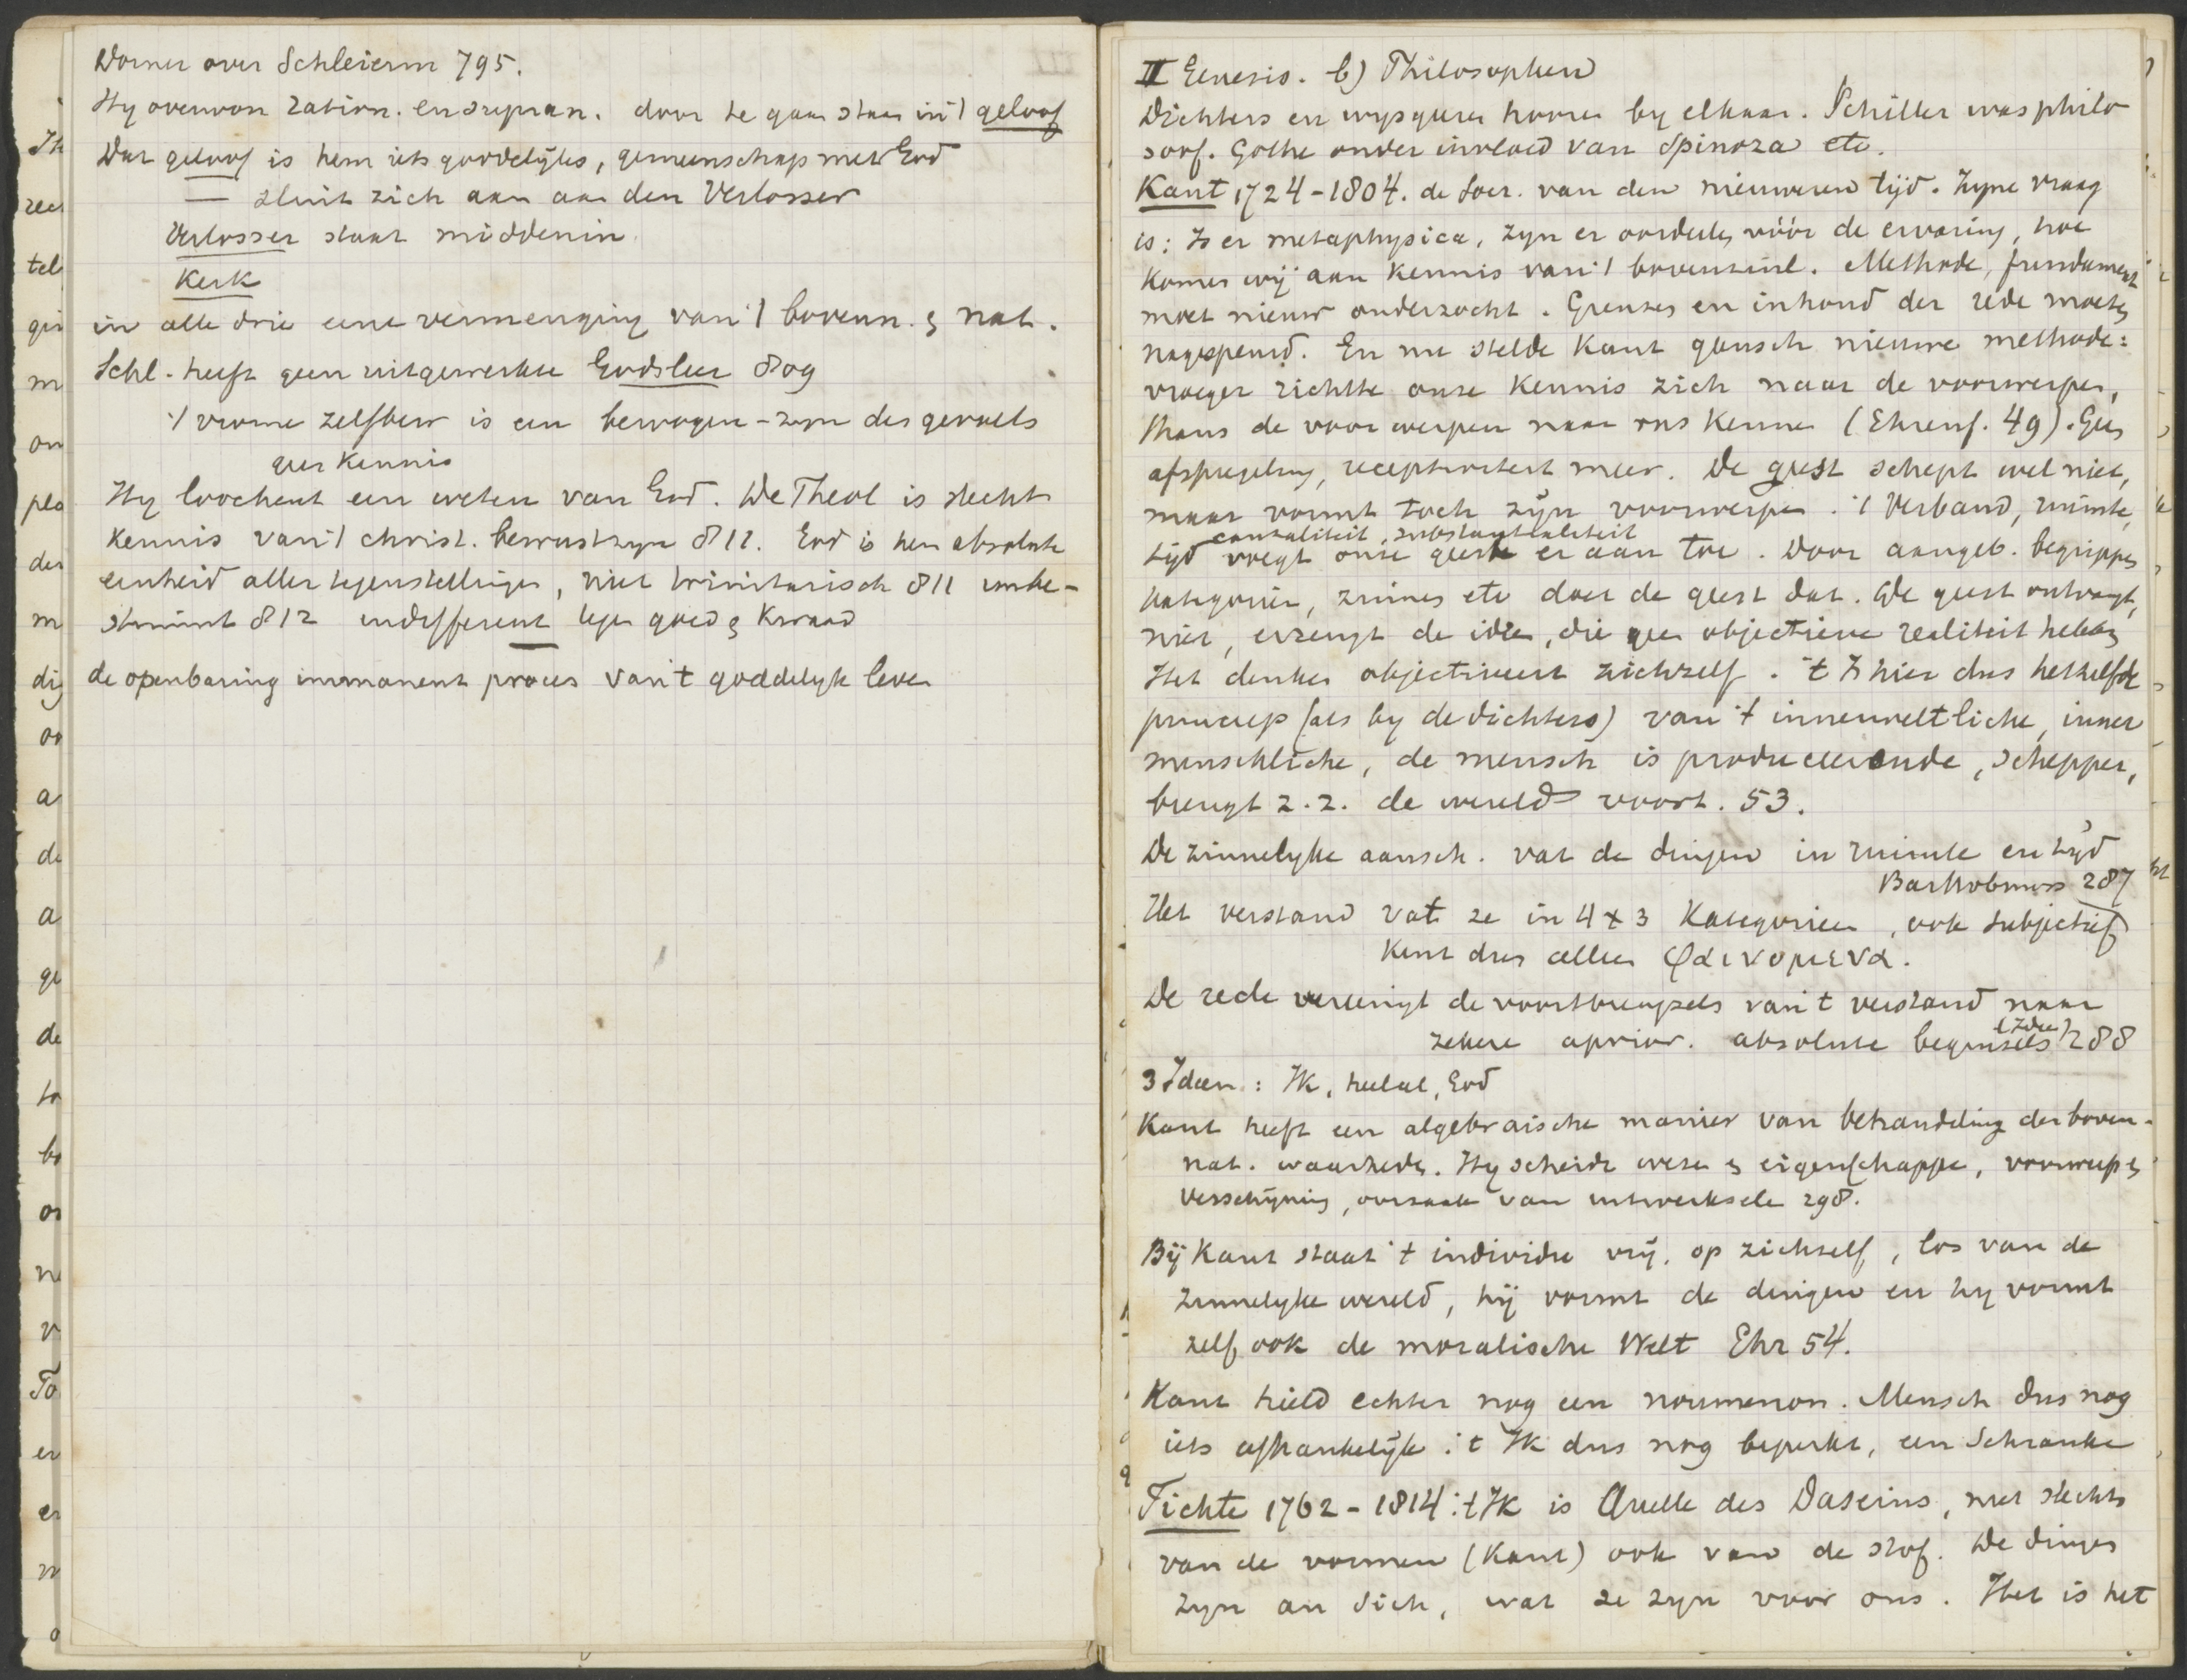 Dorner over Schleierm 795.
Hy overwon ration. en supran. door te gaan staan in 't geloof
Dat geloof is hem iets goddelijks, gemeenschap met God
— sluit zich aan aan den Verlosser
Verlosser staat middenin
Kerk
in alle drie eene vermenging van 't bovenn. & nat.
Schl. heeft geen uitgewerkte Godsleer 809
't vrome zelfbew is een bewogen-zyn des gevoels
geen Kennis
Hy loochent een weten van God. De Theol is slechts
Kennis van 't christ. bewustzyn 812. God is hem absolute
eenheid aller tegenstellingen, niet trinitarisch 811 unbe-
stimmt 812 indifferent tegen goed & Kwaad
de openbaring immanent proces van 't goddelyk leven
II Genesis. b) Philosophen
Dichters en wysgeeren hooren by elkaar. Schiller was philo
soof. Göthe onder invloed van Spinoza etc.
Kant 1724-1804. de Socr. van den nieuweren tijd. Zyne vraag
is: Is er metaphysica, zyn er oordeelen vóór de ervaring, hoe
Komen wij aan Kennis van 't bovenzinl. Methode, fundament
moet nieuw onderzocht. Grenzen en inhoud der rede moeten
nagespeurd. En nu stelde Kant gansch nieuwe methode:
vroeger richtte onze Kennis zich naar de voorwerpen,
thans de voorwerpen naar ons Kennen (Ehrenf. 49). Geen
afspiegeling, receptiviteit meer. De geest schept wel niet,
maar vormt toch zijn voorwerpen. 't Verband, ruimte,
causaliteit, substantialiteit
tijd voegt onze geest er aan toe. Door aangeb. begrippen
Kategorieën, zinnen etc doet de geest dat. De geest ontvangt
niet, erzeugt de ideen, die geen objectieve realiteit hebben
Het denken objectiveert zichzelf. 't Is hier dus hetzelfde
princiep (als by de dichters) van 't innenweltliche, inner
menschliche, de mensch is produceerende, schepper,
brengt z.z. de wereld voort. 53.
De zinnelyke aansch. vat de dingen in ruimte en tijd
Bartholmess 287
Het verstand vat ze in 4 x 3 Kategorieen, ook subjectief
Kent dus alleen φαινομενα.
De rede vereenigt de voortbrengsels van 't verstand naar
(Ideen)
zekere aprior. absolute beginsels 288
3 Ideen: Ik, heelal, God
Kant heeft een algebraische manier van behandeling der boven-
nat. waarheden. Hy scheidt wezen & eigenschappen, voorwerp &
verschijning, oorzaak van uitwerksele 298.
Bij Kant staat 't individu vrij, op zichself, los van de
zinnelyke wereld, hij vormt de dingen en hy vormt
zelf ook de moralische Welt Ehr 54.
Kant hield echter nog een noumenon. Mensch dus nog
iets afhankelijk. 't Ik dus nog beperkt, een Schranke
Fichte 1762-1814: 't Ik is Quelle des Daseins, niet slechts
van de vormen (Kant) ook van de stof. De dingen
zyn an sich, wat ze zyn voor ons. Het is het